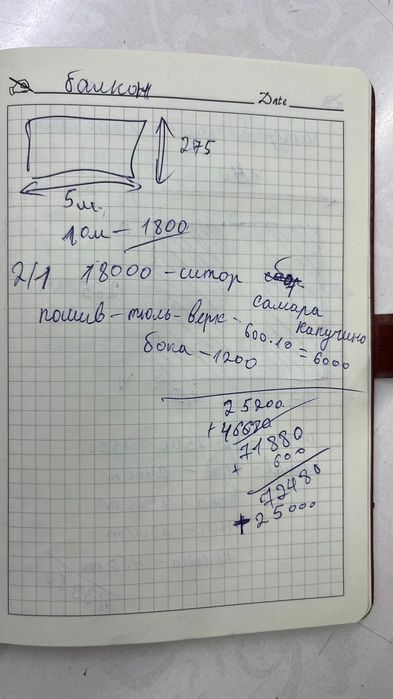 балкон
Date
275
5м.
1ом - 1800
2/1 18000 - ситор
самара
капучино
пошив - тюль - верк - 600.10 = 6000
бока - 1200
25200
+46680
71880
+ 600
72480
+ 25000